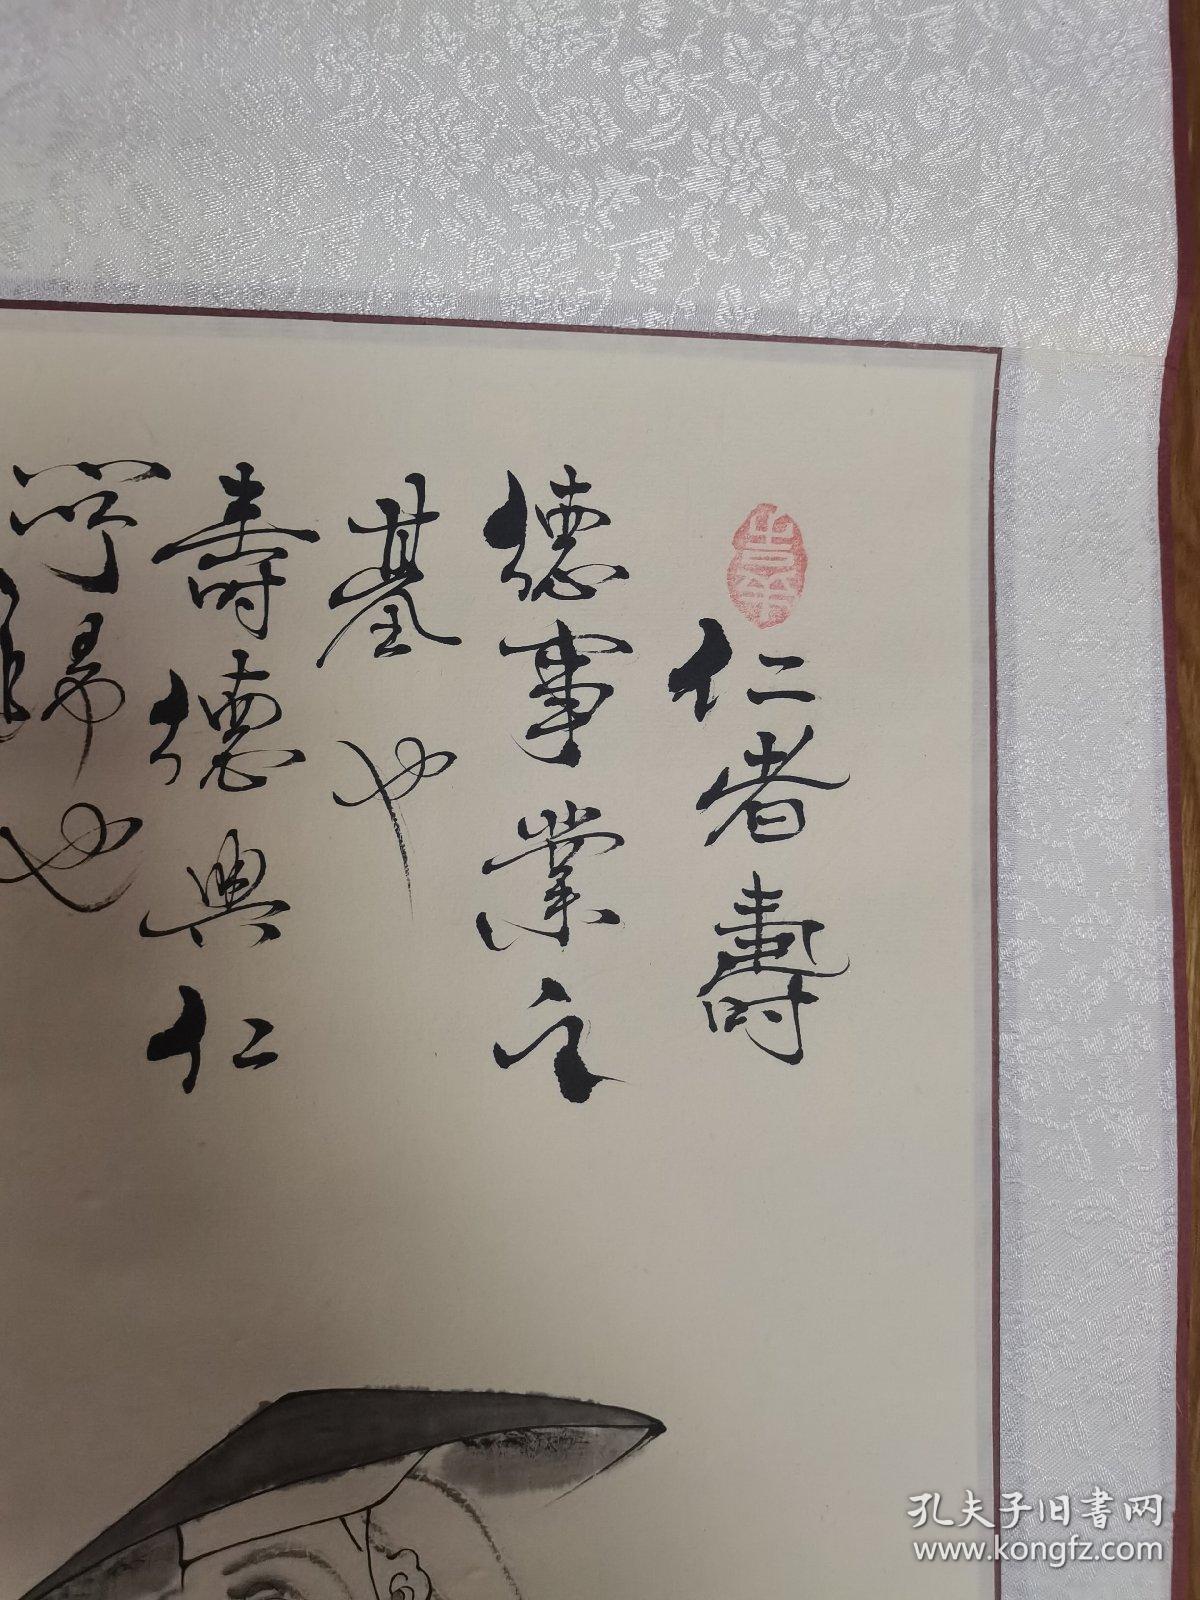 仁者壽
德事業之
基也
壽德與仁
歸也
孔夫子旧书网
www.kongfz.com